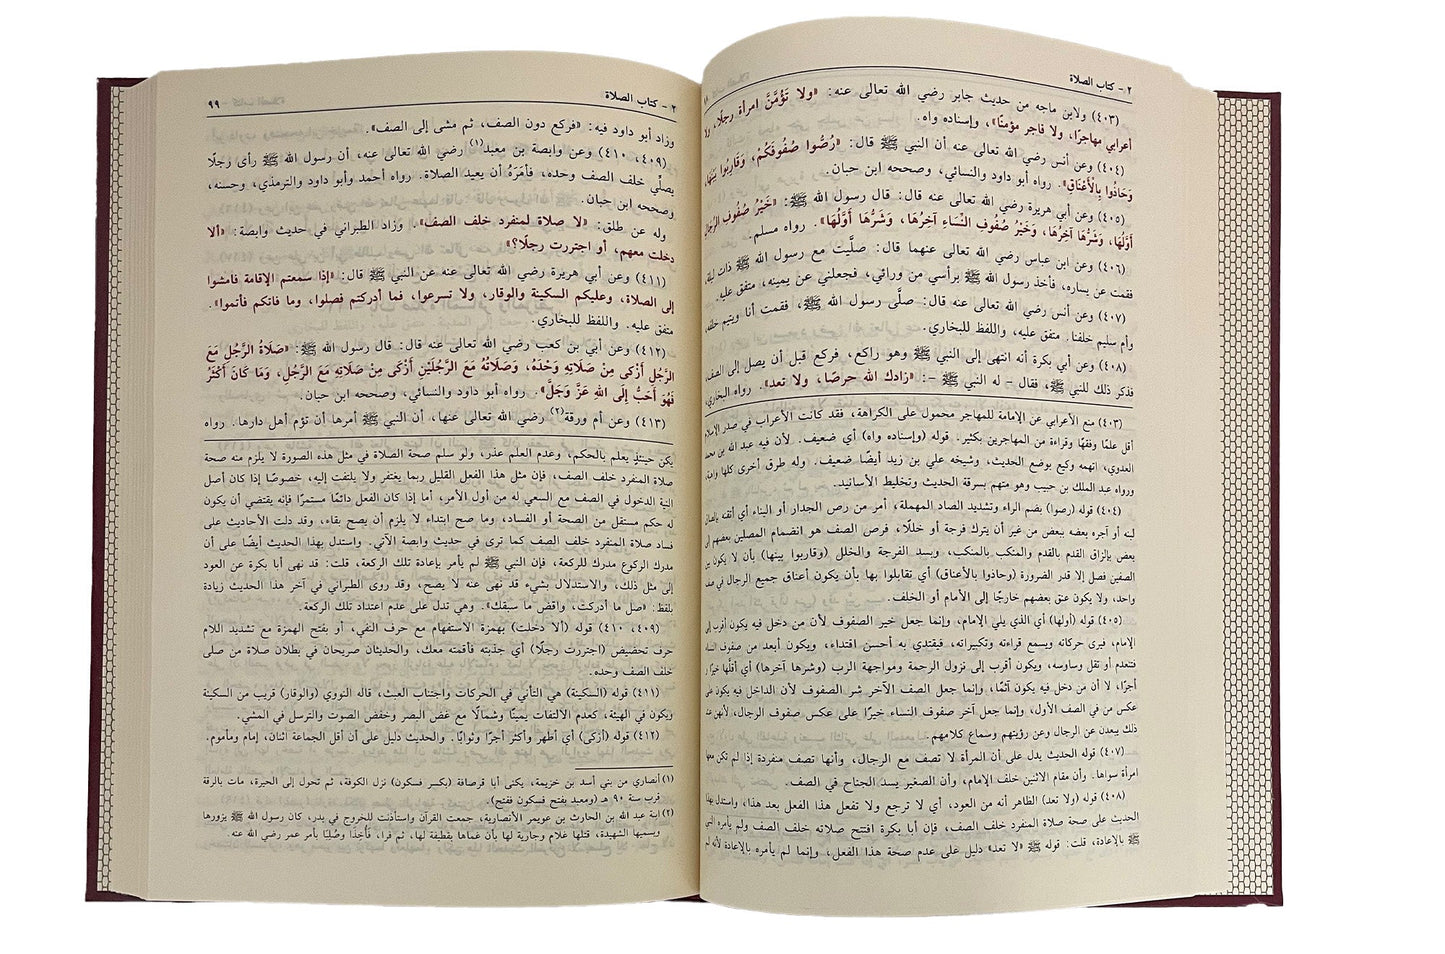 ٢ - كتاب الصلاة
(٤٠٣) ولابن ماجه من حديث جابر رضي الله تعالى عنه: «ولا تَؤُمَّنَّ امرأة رجلًا، ولا
أعرابي مهاجرًا، ولا فاجر مؤمنًا»، وإسناده واه.
(٤٠٤) وعن أنس رضي الله تعالى عنه أن النبي ﷺ قال: «رُصُّوا صُفُوفَكُمْ، وَقَارِبُوا بَيْنَهَا،
وَحَاذُوا بِالْأَعْنَاقِ». رواه أبو داود والنسائي، وصححه ابن حبان.
(٤٠٥) وعن أبي هريرة رضي الله تعالى عنه قال: قال رسول الله ﷺ: «خَيْرُ صُفُوفِ الرِّجَالِ
أَوَّلُهَا، وَشَرُّهَا آخِرُهَا، وَخَيْرُ صُفُوفِ النِّسَاءِ آخِرُهَا، وَشَرُّهَا أَوَّلُهَا». رواه مسلم.
(٤٠٦) وعن ابن عباس رضي الله تعالى عنهما قال: صلَّيت مع رسول الله ﷺ ذات ليلة
فقمت عن يساره، فأخذ رسول الله ﷺ برأسي من ورائي، فجعلني عن يمينه، متفق عليه.
(٤٠٧) وعن أنس رضي الله تعالى عنه قال: صلَّى رسول الله ﷺ، فقمت أنا ويتيم خلفه،
وأم سليم خلفنا. متفق عليه، واللفظ للبخاري.
(٤٠٨) وعن أبي بكرة أنه انتهى إلى النبي ﷺ وهو راكع، فركع قبل أن يصل إلى الصف،
فذكر ذلك للنبي ﷺ، فقال - له النبي ﷺ -: «زادك الله حرصًا، ولا تعد». رواه البخاري،
(٤٠٣) منع الأعرابي عن الإمامة للمهاجر محمول على الكراهة، فقد كانت الأعراب في صدر الإسلام
أقل علمًا وفقهًا وقراءة من المهاجرين بكثير. قوله (وإسناده واه) أي ضعيف. لأن فيه عبد الله بن محمد
العدوي، اتهمه وكيع بوضع الحديث، وشيخه علي بن زيد أيضًا ضعيف. وله طرق أخرى كلها واهية،
ورواه عبد الملك بن حبيب وهو متهم بسرقة الحديث وتخليط الأسانيد.
(٤٠٤) قوله (رصوا) بضم الراء وتشديد الصاد المهملة، أمر من رص الجدار أو البناء أي أتقنه بإلصاق
لبنه أو آجره بعضه ببعض من غير أن يترك فرجة أو خللًا، فرص الصف هو انضمام المصلين بعضهم إلى
بعض بإلزاق القدم بالقدم والمنكب بالمنكب، ويسد الفرجة والخلل (وقاربوا بينها) بأن لا يكون بين
الصفين فصل إلا قدر الضرورة (وحاذوا بالأعناق) أي تقابلوا بها بأن يكون أعناق جميع الرجال في صف
واحد، ولا يكون عنق بعضهم خارجًا إلى الأمام أو الخلف.
(٤٠٥) قوله (أولها) أي الذي يلي الإمام، وإنما جعل خير الصفوف لأن من دخل فيه يكون أقرب إلى
الإمام، فيرى حركاته ويسمع قراءته وتكبيراته، فيقتدي به أحسن اقتداء، ويكون أبعد من صفوف النساء
فتنعدم أو تقل وساوسه، ويكون أقرب إلى نزول الرحمة ومواجهة الرب (وشرها آخرها) أي أقلُّها خيرًا و
أجرًا، لا أن من دخل فيه يكون آثمًا، وإنما جعل الصف الآخر شر الصفوف لأن الداخل فيه يكون على
عكس من في الصف الأول، وإنما جعل آخر صفوف النساء خيرًا على عكس صفوف الرجال، لأنهن عند
ذلك يبعدن عن الرجال وعن رؤيتهم وسماع كلامهم.
(٤٠٧) الحديث يدل على أن المرأة لا تصف مع الرجال، وأنها تصف منفردة إذا لم تكن معها
امرأة سواها. وأن مقام الاثنين خلف الإمام، وأن الصغير يسد الجناح في الصف.
(٤٠٨) قوله (ولا تعد) الظاهر أنه من العود، أي لا ترجع ولا تفعل هذا الفعل بعد هذا، واستدل بهذا
الحديث على صحة صلاة المنفرد خلف الصف، فإن أبا بكرة افتتح صلاته خلف الصف ولم يأمره النبي
ﷺ بالإعادة، قلت: قوله ﷺ «لا تعد» دليل على عدم صحة هذا الفعل، وإنما لم يأمره بالإعادة لأنه لم
٢ - كتاب الصلاة ٩٩
وزاد أبو داود فيه: «فركع دون الصف، ثم مشى إلى الصف».
(٤٠٩، ٤١٠) وعن وابصة بن معبد(١) رضي الله تعالى عنه، أن رسول الله ﷺ رأى رجلًا
يصلِّي خلف الصف وحده، فأمَرَهُ أن يعيد الصلاة. رواه أحمد وأبو داود والترمذي، وحسنه،
وصححه ابن حبان.
وله عن طلق: «لا صلاة لمنفرد خلف الصف». وزاد الطبراني في حديث وابصة: «ألا
دخلت معهم، أو اجتررت رجلًا؟»
(٤١١) وعن أبي هريرة رضي الله تعالى عنه عن النبي ﷺ قال: «إذا سمعتم الإقامة فامشوا
إلى الصلاة، وعليكم السكينة والوقار، ولا تسرعوا، فما أدركتم فصلوا، وما فاتكم فأتموا».
متفق عليه. واللفظ للبخاري.
(٤١٢) وعن أبي بن كعب رضي الله تعالى عنه قال: قال رسول الله ﷺ: «صَلَاةُ الرَّجُلِ مَعَ
الرَّجُلِ أَزْكَى مِنْ صَلَاتِهِ وَحْدَهُ، وَصَلَاتُهُ مَعَ الرَّجُلَيْنِ أَزْكَى مِنْ صَلَاتِهِ مَعَ الرَّجُلِ، وَمَا كَانَ أَكْثَرُ
فَهُوَ أَحَبُّ إِلَى اللهِ عَزَّ وَجَلَّ». رواه أبو داود والنسائي، وصححه ابن حبان.
(٤١٣) وعن أم ورقة(٢) رضي الله تعالى عنها، أن النبي ﷺ أمرها أن تؤم أهل دارها. رواه
يكن حينئذٍ يعلم بالحكم، وعدم العلم عذر، ولو سلم صحة الصلاة في مثل هذه الصورة لا يلزم منه صحة
صلاة المنفرد خلف الصف، فإن مثل هذا الفعل القليل ربما يغتفر ولا يلتفت إليه، خصوصًا إذا كان أصل
النية الدخول في الصف مع السعي له من أول الأمر، أما إذا كان الفعل دائمًا مستمرًا فإنه يقتضي أن يكون
له حكم مستقل من الصحة أو الفساد، وما صح ابتداء لا يلزم أن يصح بقاء، وقد دلت الأحاديث على
فساد صلاة المنفرد خلف الصف كما ترى في حديث وابصة الآتي. واستدل بهذا الحديث أيضًا على أن
مدرك الركوع مدرك للركعة، فإن النبي ﷺ لم يأمر بإعادة تلك الركعة، قلت: قد نهى أبا بكرة عن العود
إلى مثل ذلك، والاستدلال بشيء قد نهى عنه لا يصح، وقد روى الطبراني في آخر هذا الحديث زيادة
بلفظ: «صل ما أدركت، واقض ما سبقك». وهي تدل على عدم اعتداد تلك الركعة.
(٤٠٩، ٤١٠) قوله (ألا دخلت) بهمزة الاستفهام مع حرف النفي، أو بفتح الهمزة مع تشديد اللام
حرف تحضيض (اجتررت رجلًا) أي جذبته فأقمته معك، والحديثان صريحان في بطلان صلاة من صلى
خلف الصف وحده.
(٤١١) قوله (السكينة) هي التأني في الحركات واجتناب العبث، قاله النووي (والوقار) قريب من السكينة
ويكون في الهيئة، كعدم الالتفات يمينًا وشمالًا مع غض البصر وخفض الصوت والترسل في المشي.
(٤١٢) قوله (أزكى) أي أطهر وأكثر أجرًا وثوابًا. والحديث دليل على أن أقل الجماعة اثنان، إمام ومأموم.
(١) أنصاري من بني أسد بن خزيمة، يكنى أبا قرصافة (بكسر فسكون) نزل الكوفة، ثم تحول إلى الحيرة، مات بالرقة
قرب سنة ٩٠ هـ (ومعبد بفتح فسكون ففتح).
(٢) ابنة عبد الله بن الحارث بن عويمر الأنصارية، جمعت القرآن واستأذنت للخروج في بدر، كان رسول الله ﷺ يزورها
ويسميها الشهيدة، قتلها غلام وجارية لها بأن غماها بقطيفة لها، ثم فرا، فأُخذا وصُلبا بأمر عمر رضي الله عنه.